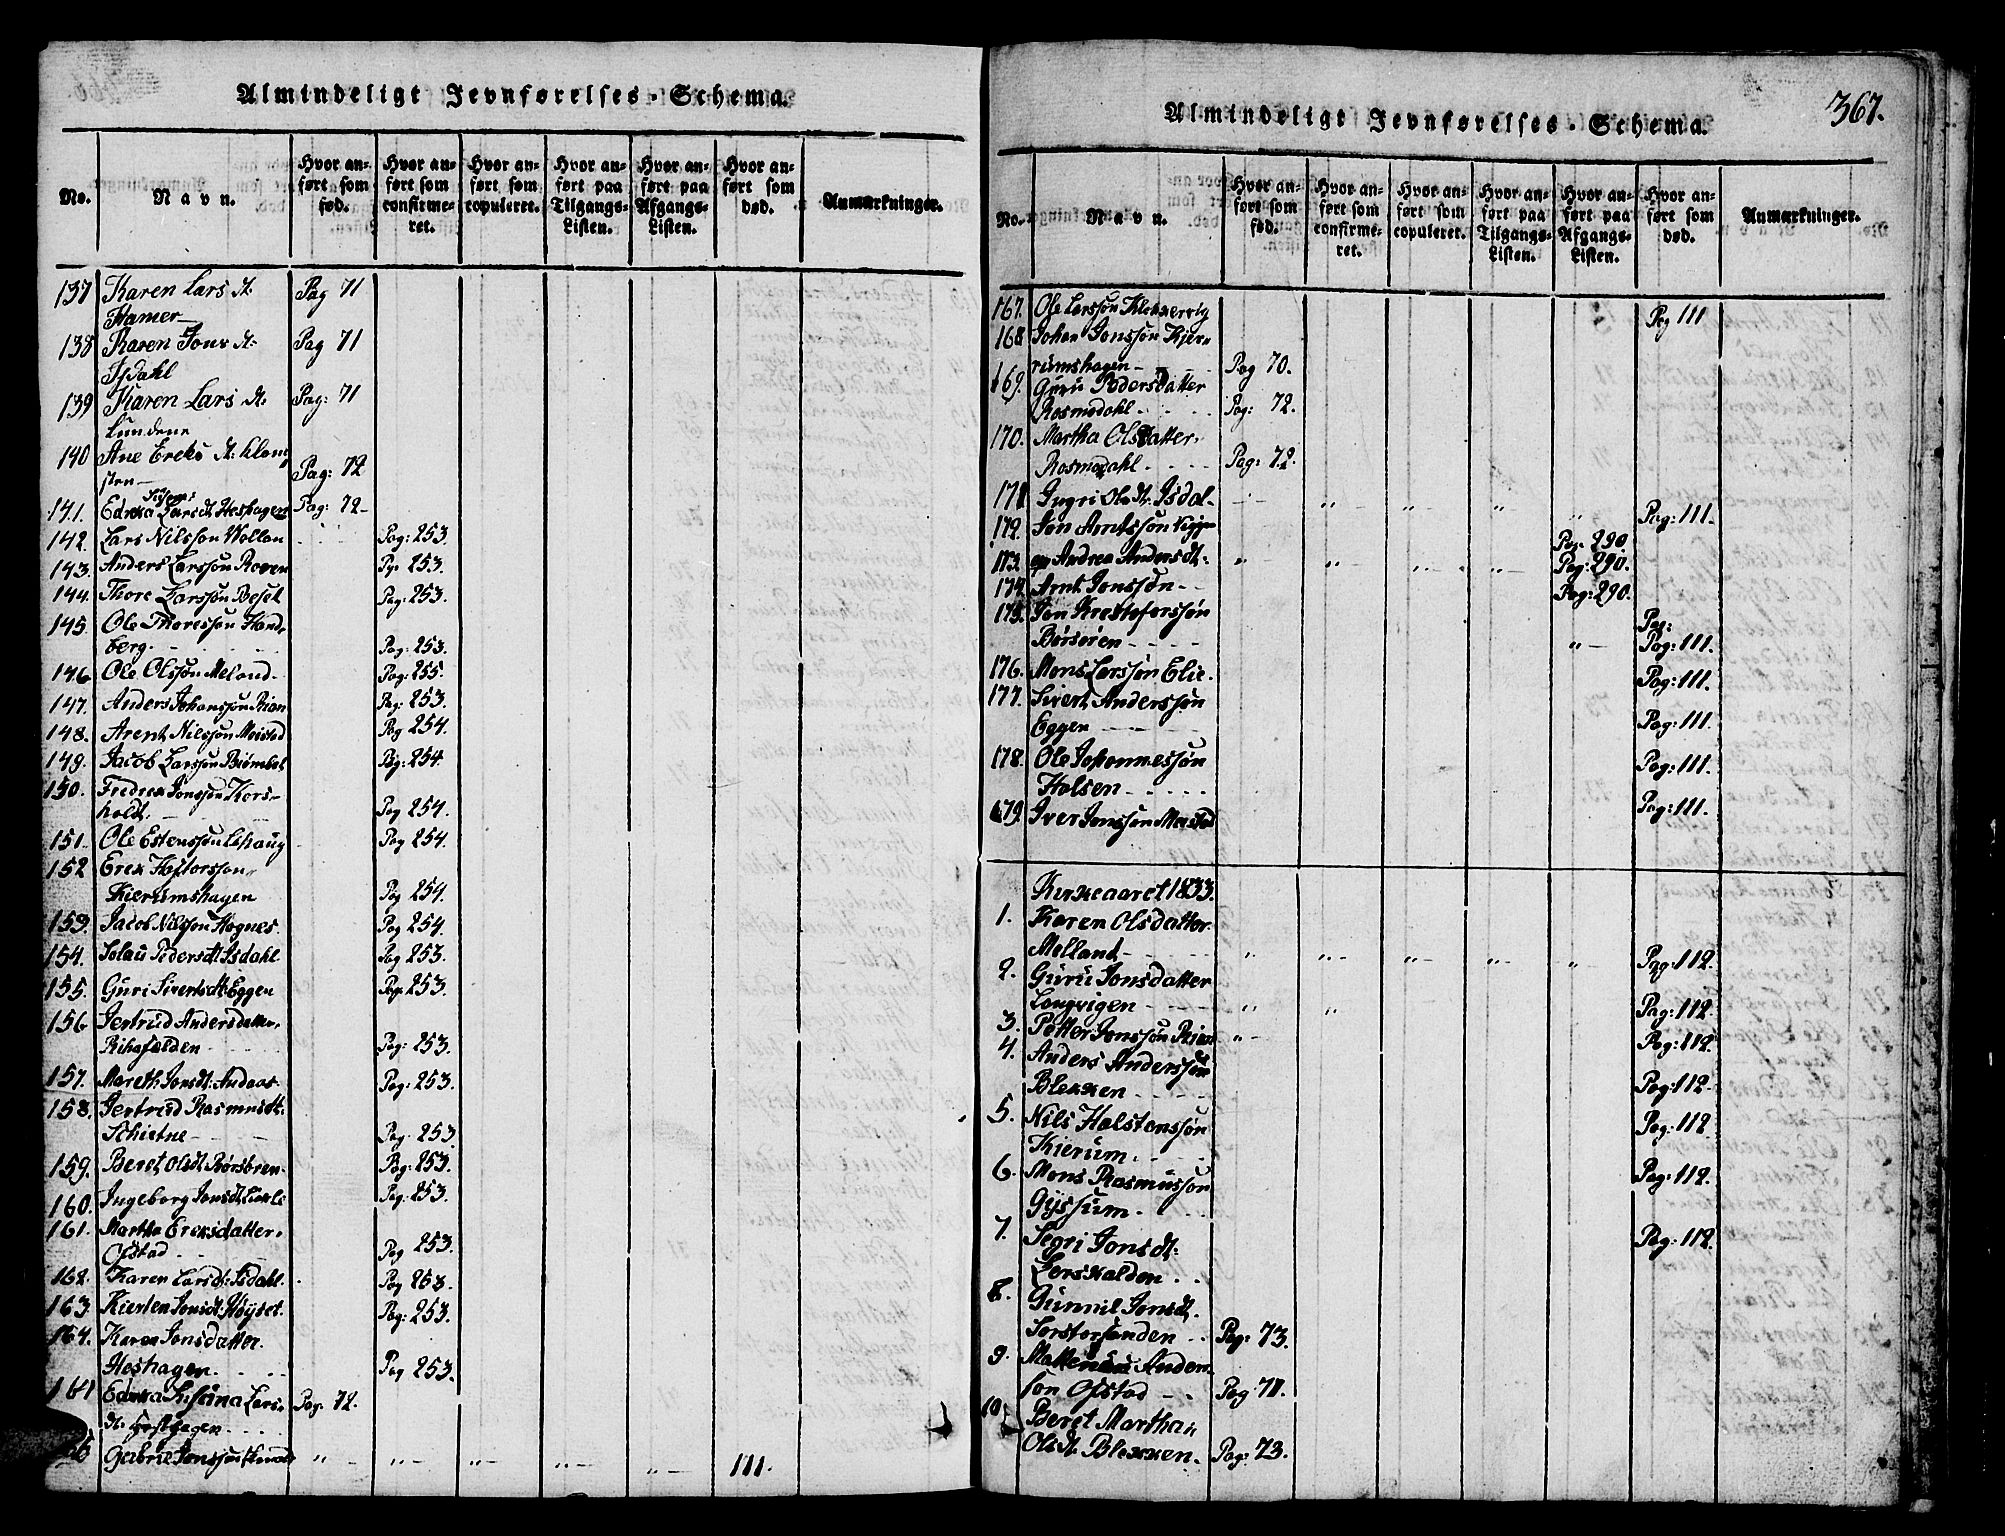 Almindeligt Jevnførelses-Schema.
No.
Navn.
Hvor anført som fød.
Hvor anført som confirmeret.
Hvor anført som copuleret.
Hvor anført paa Tilgangs-Listen.
Hvor anført paa Afgangs-Listen.
Hvor anført som død.
Anmærkninger.
137 Karen Lars dt. Pag 71
Hamer
138 Karen Jons dt. Pag 71
Isdahl
139 Karen Lars dt. Pag: 71
Lundene
140 Ane Ereks dt.
sten Pag: 72
141. Larsdt Heshagen Pag: 72
142. Lars Nilsson Wollan Pag: 253.
143. Anders Larssøn Roven Pg: 253.
144. Thore Larssøn Beset Pag: 253.
145. Ole Thoressøn Hand-
berg. Pag: 253.
146 Ole Olssøn Meland. Pag: 255.
147. Anders Johanssøn Rian Pag: 253.
148. Arent Nilssøn Meistad Pag 254.
149. Jacob Larssøn Pag: 254.
150. Fredrek Jonssøn Kors-
holdt. Pag 254.
151. Ole Estenssøn Lehaug Pag 254.
152 Erek
Kierumshagen Pag 254.
153. Jacob Nilssøn Hognes. Pag 254.
154. Pedersdt Isdahl Pag 253.
155. Guri Siverts dt: Eggen Pag: 253.
156. Jertrud Andersdatter.
Pag: 253.
157. Mareth Jonsdt: Pag: 253.
158. Jertrud Rasmusdt:
Schietne Pag: 253
159. Beret Olsdt. Pag: 253.
160. Ingeborg Jonsdt. Pag: 253.
161. Martha Ereksdatter.
Ofstad Pag 253.
162. Karen Larsdt: Isdahl. Pag 253.
163 Kiersten Jonsdt: Høyset. Pag: 253.
164. Karen Jonsdatter.
Heshagen. Pag 253.
Lars- Pag. 72.
dt:
Jonssøn 111.
Almindeligt Jevnførelses-Schema.
367.
No.
Navn.
Hvor anført som fød.
Hvor anført som confirmeret.
Hvor anført som copuleret.
Hvor anført paa Tilgangs-Listen.
Hvor anført paa Afgangs-Listen.
Hvor anført som død.
Anmærkninger.
167. Ole Larssøn Pag 111
168 Johan Jonssøn Kjer-
rumshagen Pag 70.
169. Guru Pedersdatter
Rosmodahl Pag: 72.
170. Martha Olsdatter.
Rosmodahl Pag: 72.
171 Ingri Ols dt. Isdal Pag: 111.
172. Jon Arntssøn Pag: 290
173. Andrea Andersdt: Pag: 290.
174 Arnt Jonssøn Pag: 290.
175. Jon Krestoforssøn Pag:
Børsøren Pag: 111.
176. Mons Larssøn Elie. Pag: 111.
177. Sivert Anderssøn
Eggen Pag: 111.
178. Ole Johannessøn Pag: 111.
Holsen
179. Iver Jonssøn Pag: 111.
Kirkeaaret 1833.
1. Karen Olsdatter
Melland Pag. 112.
2. Guru Jonsdatter
Langvigen Pag: 112.
3. Petter Jonssøn Rian Pag: 112
4. Anders Anderssøn
Blekken Pag: 112
5. Nils Halstenssøn Pag: 112
Kierum.
6. Mons Rasmussøn Pag: 112.
Gyssum.
7. Segri Jonsdt: Pag: 112.
Lerskalden
8. Gunnil Jonsdt.
Pag: 73.
9. Ander-
søn Ofstad Pag: 71.
10 Beret Martha
Olsdt. Blekken. Pag: 73.